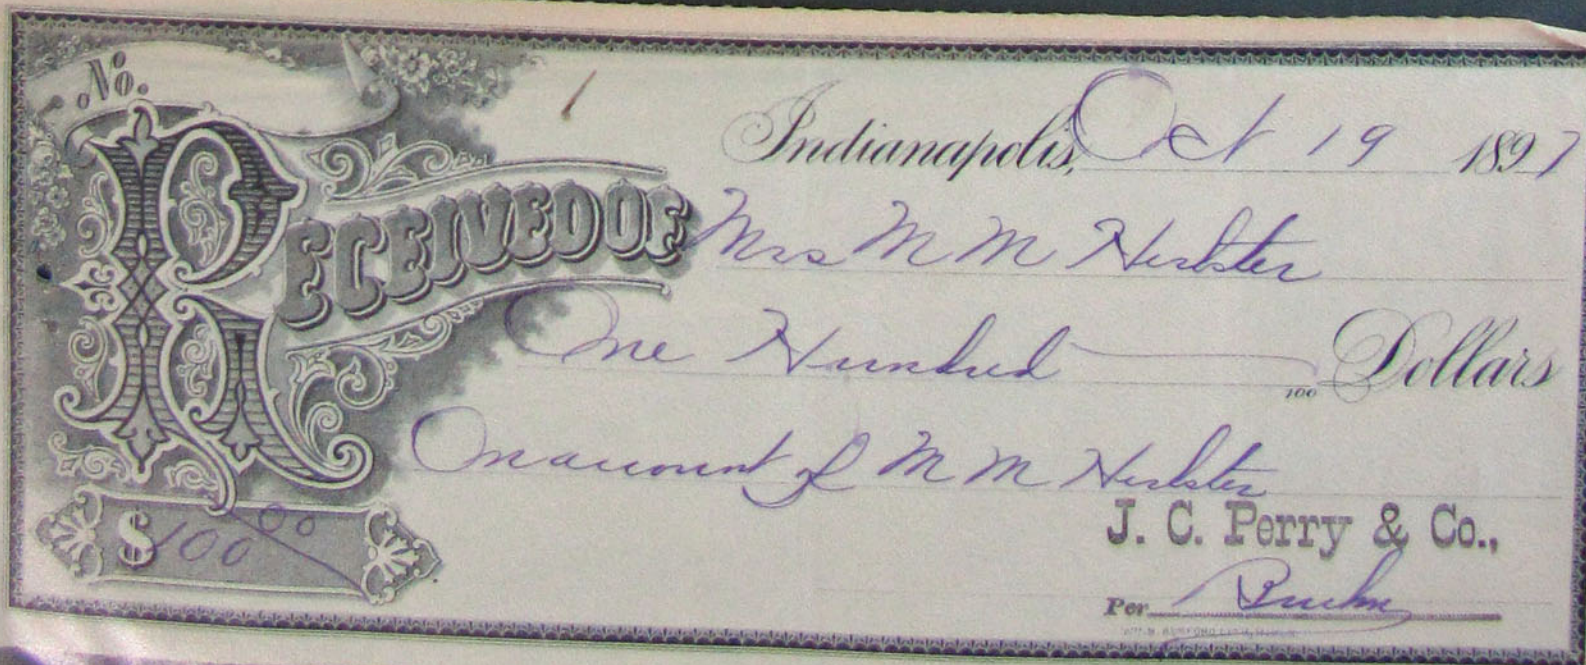 No.
Indianapolis, Oct 19 1897
RECEIVED OF Mrs M M Herbster
One Hundred /100 Dollars
On account of M M Herbster
$100 00
J. C. Perry & Co.,
Per